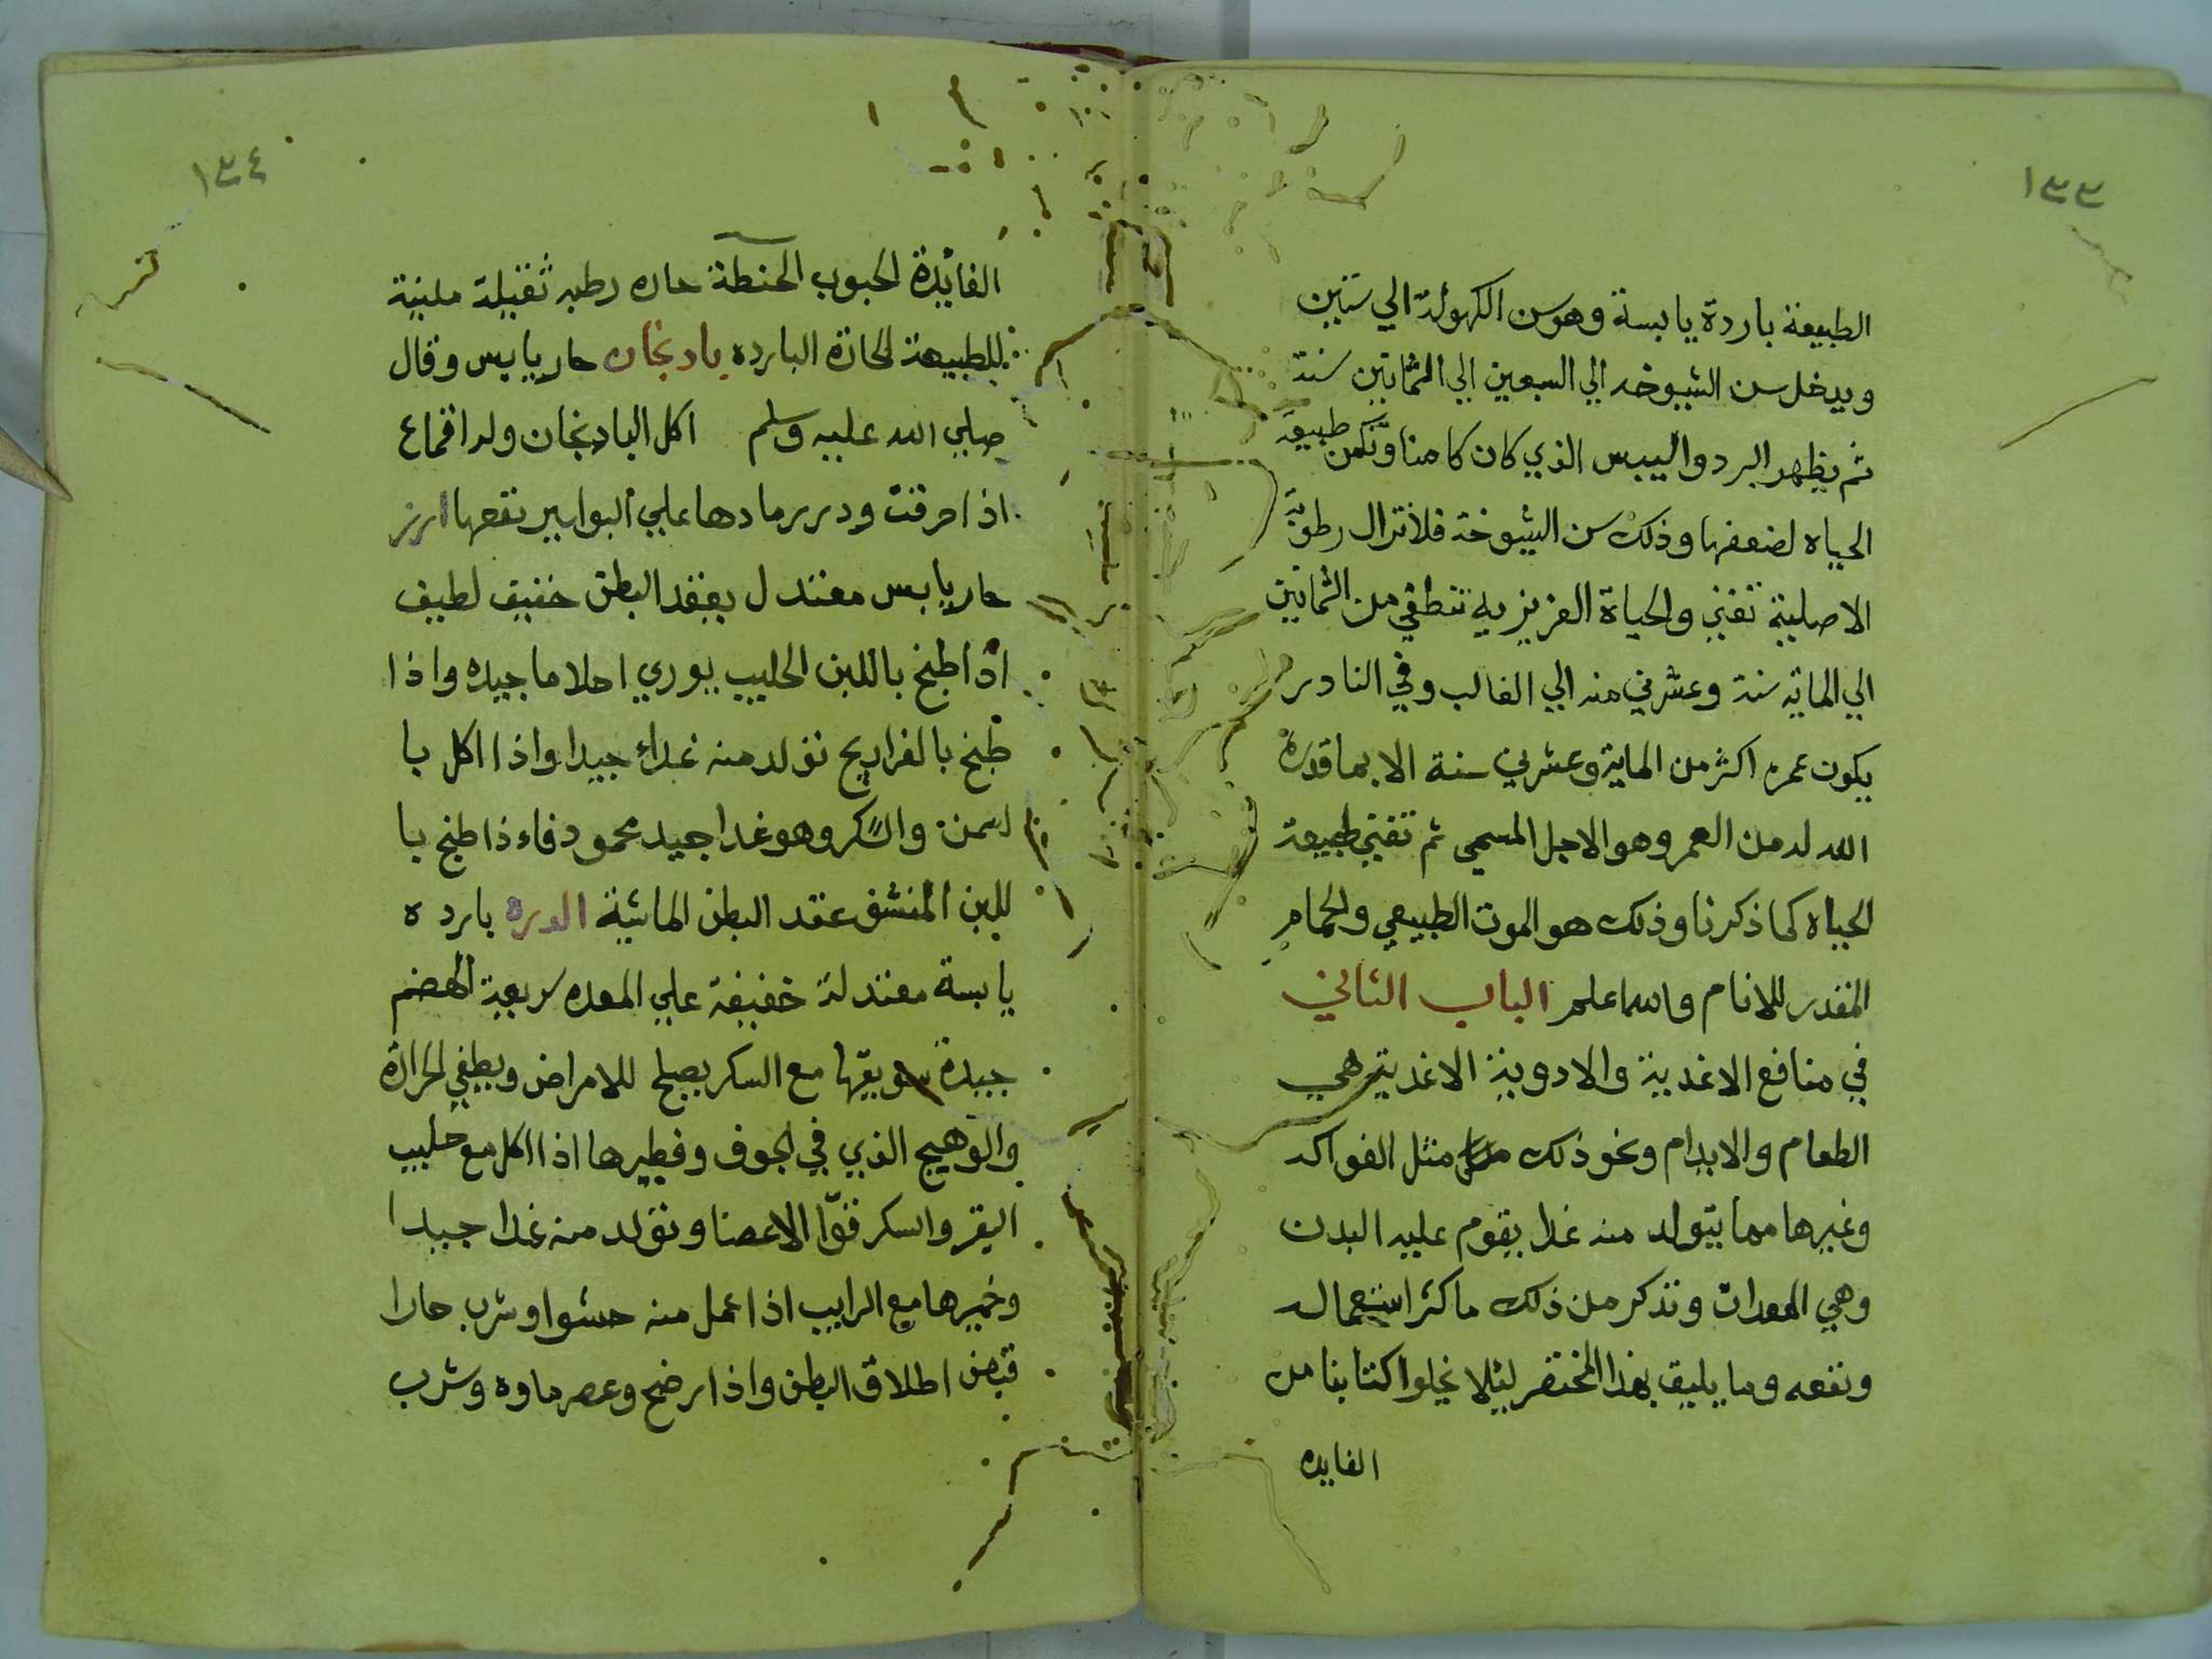 ١٣٣
الطبيعة باردة يابسة وهو سن الكهولة الي ستين
ويدخل سن الشيوخه الي السبعين الي الثمانين سنة
ثم يظهر البرد واليبس الذي كان كامنا وتكمن طبيعة
الحياه لضعفها وذلك سن الشيوخة فلا تزال رطوبة
الاصلية تفني والحياة الغريزيه تنطفي من الثمانين
الي المايه سنة وعشرين منه الي الغالب وفي النادر
يكون عمره اكثر من الماية وعشرين سنة الا بما قدره
الله له من العمر وهو الاجل المسمي ثم تفني طبيعة
الحياه كما ذكرنا وذلك هو الموت الطبيعي والحمام
المقدر للانام والله اعلم الباب الثاني
في منافع الاغدية والادوية الاغدية هي
الطعام والايدام ونحو ذلك مثل الفواكه
وغيرها مما يتولد منه غدا يقوم عليه البدن
وهي المعدات ونذكر من ذلك ما كثر استعماله
ونفعه وما يليق بهذا المختصر ليلا نخلوا كتابنا من
الفايده
١٣٤
الفايدة الحبوب الحنطة حاره رطبه ثقيلة ملينة
للطبيعة الحارة البارده بادنجان حار يابس وقال
صلي الله عليه وسلم اكل البادنجان وله اقماع
اذا احرقت ودرر مادها علي البواسير نفعها ارز
حار يابس معتدل يعقد البطن خفيف لطيف
اذا طبخ باللبن الحليب يوري احلاما جيده واذا
طبخ بالفراريج تولد منه غداء جيدا واذا اكل با
لسمن والسكر وهو غدا جيد محمود فاءذا طبخ با
للبن المنشف عقد البطن الماشية الدره بارده
يابسة معتدلة خفيفة علي المعده سريعة الهضم
جيدة سويقها مع السكر يصلح للامراض ويطفي الحرارة
والوهيج الذي في الجوف وفطيرها اذا اكل مع حليب
البقر والسكر قوّا الاعضا وتولد منه غدا جيدا
وخميرها مع الرايب اذا عمل منه حسّوا وشرب حارا
قبض اطلاق البطن واذا رضح وعصر ماوه وشرب